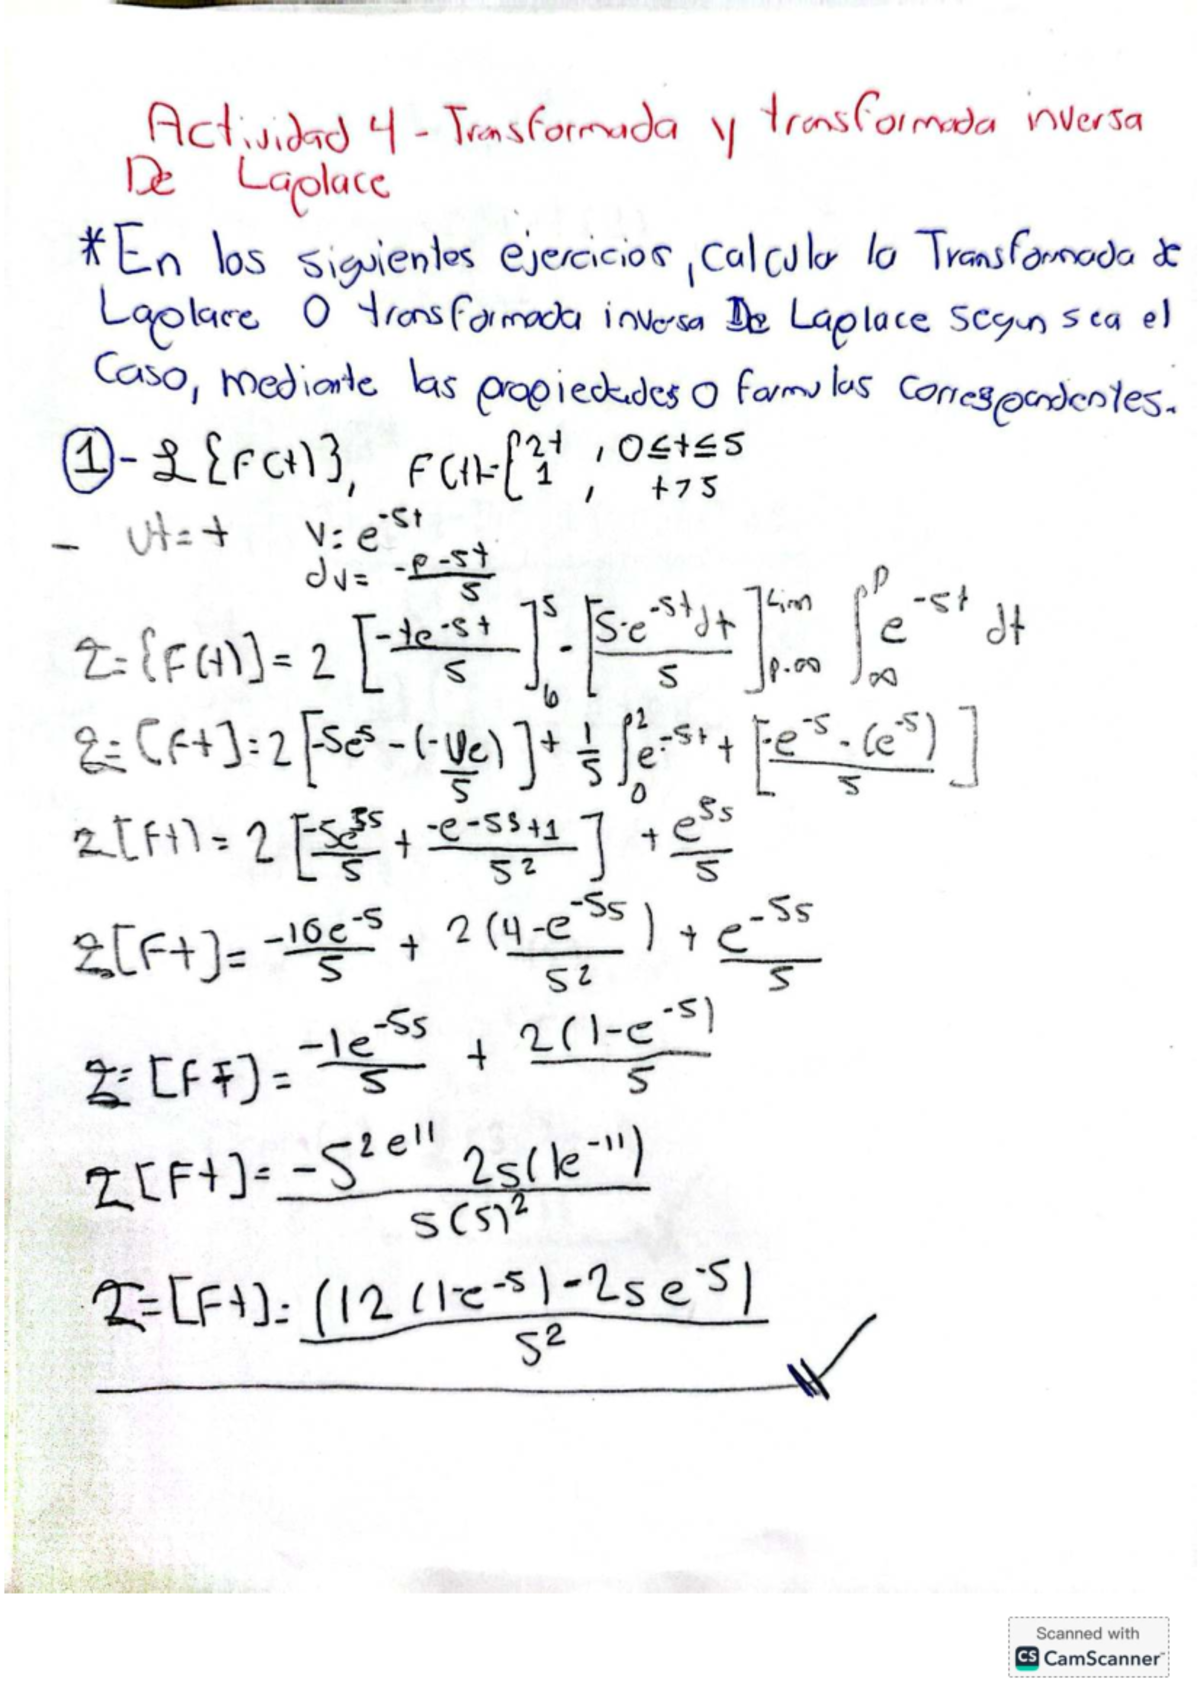 Actividad 4 - Transformada y transformada inversa
De Laplace
*En los siguientes ejercicios, calcular la Transformada de
Laplace O transformada inversa De Laplace segun sea el
Caso, mediante las propiedades o formulas correspondentes.
①- L{F(t)}, F(t)={2t, 0≤t≤5
1, t>5
- ut=t v=e^-st
dv= -e-st/s
L={F(t)]=2[-te-st/s]^5_0 - [S-e^-st dt/s] Lim p-∞ ∫^p_∞ e^-st dt
L=[Ft]=2[-5e^s-(-Ue)/s]+1/s∫^2_0 e^-st+[-e^-s-(e^-s)/s]
L[Ft]=2[-5e^5s/s+-e-5s+1/s^2]+e^5s/s
L[Ft]=-10e^-s/s+2(1-e^-5s)/s^2+e^-5s/s
L=[Ft]=-1e^-5s/s+2(1-e^-s)/s
L[Ft]=-s^2e^11 2s(1e^-11)/s(s)^2
L=[Ft]=(12(1-e^-s)-2se^-s)/s^2
Scanned with
CS CamScanner